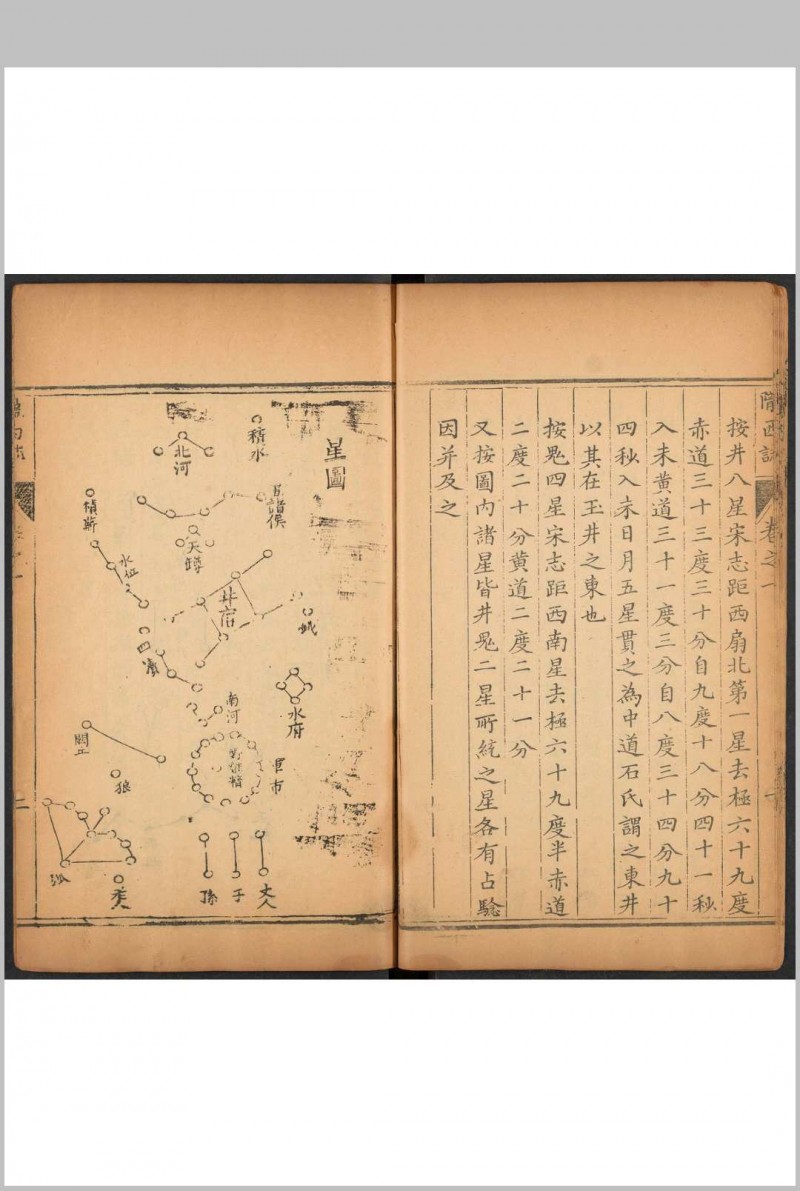 隴西志
卷之一
按井八星宋志距西扇北第一星去極六十九度
赤道三十三度三十分自九度十八分四十一秒
入未黃道三十一度三分自八度三十四分九十
四秒入未日月五星貫之為中道石氏謂之東井
以其在玉井之東也
按鬼四星宋志距西南星去極六十九度半赤道
二度二十分黃道二度二十一分
又按圖內諸星皆井鬼二星所統之星各有占驗
因并及之
星圖
積水
北河
諸侯
天罇
積薪
水位
井宿
鉞
四瀆
水府
南河
軍市
野雞
闕丘
狼
弧
老人
丈人
子
孫
二